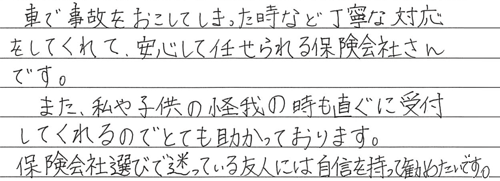 車で事故をおこしてしまった時など丁寧な対応
をしてくれて、安心して任せられる保険会社さん
です。
また、私や子供の怪我の時も直ぐに受付
してくれるのでとても助かっております。
保険会社選びで迷っている友人には自信を持って勧めたいです。